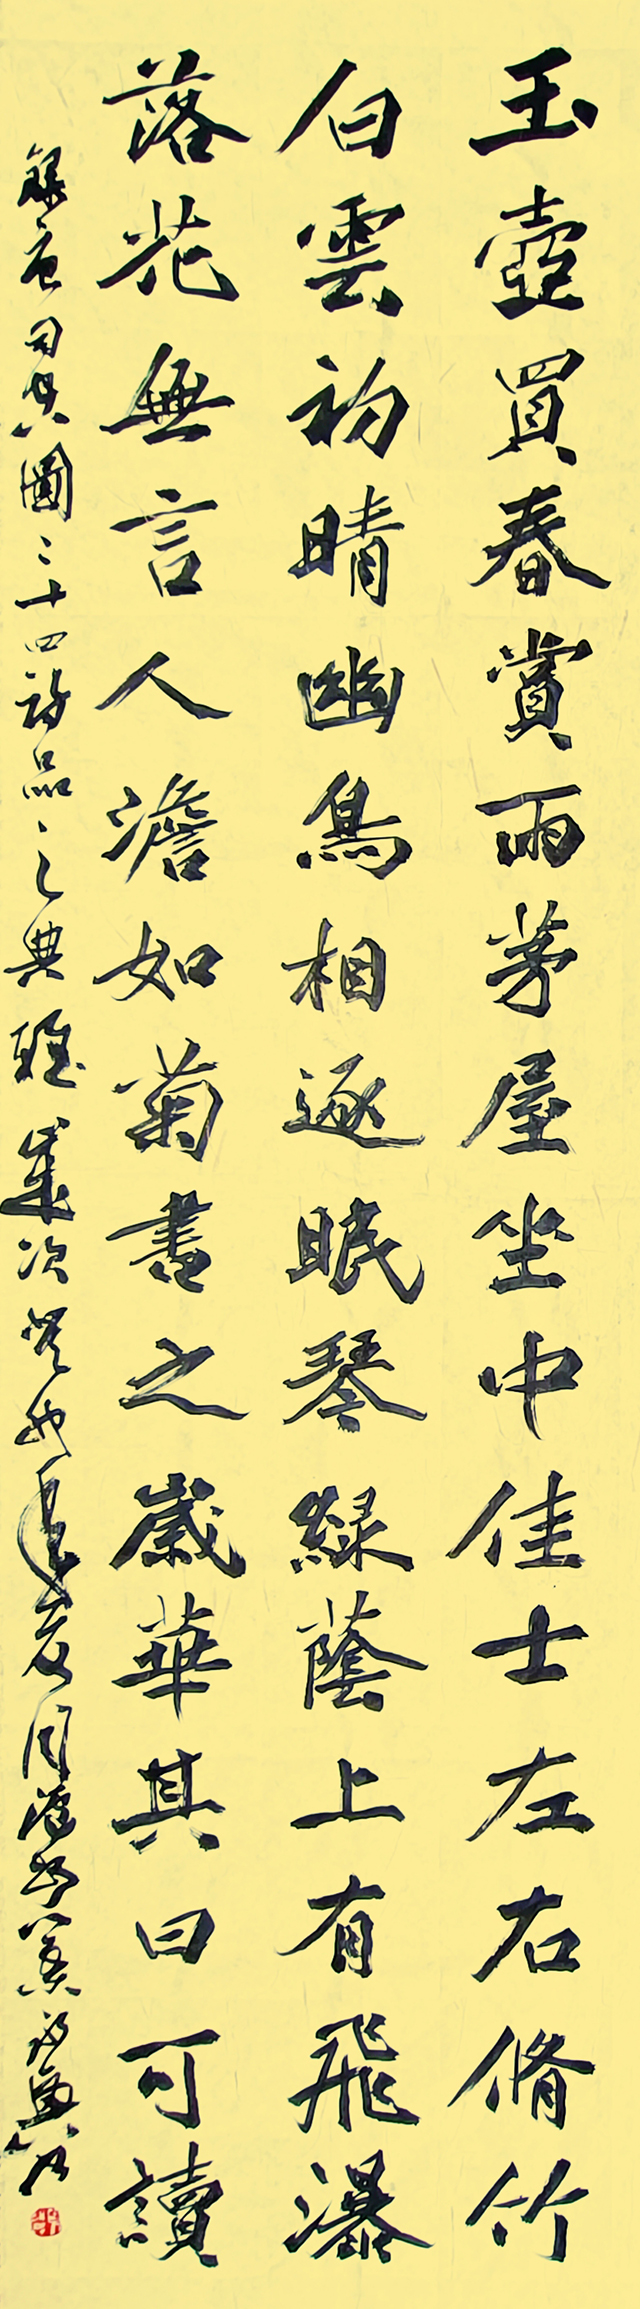 玉壺買春賞雨茅屋坐中佳士左右脩竹
白雲初晴幽鳥相逐眠琴綠蔭上有飛瀑
落花無言人澹如菊書之歲華其曰可讀
錄唐司空圖二十四詩品之典雅歲次癸卯年